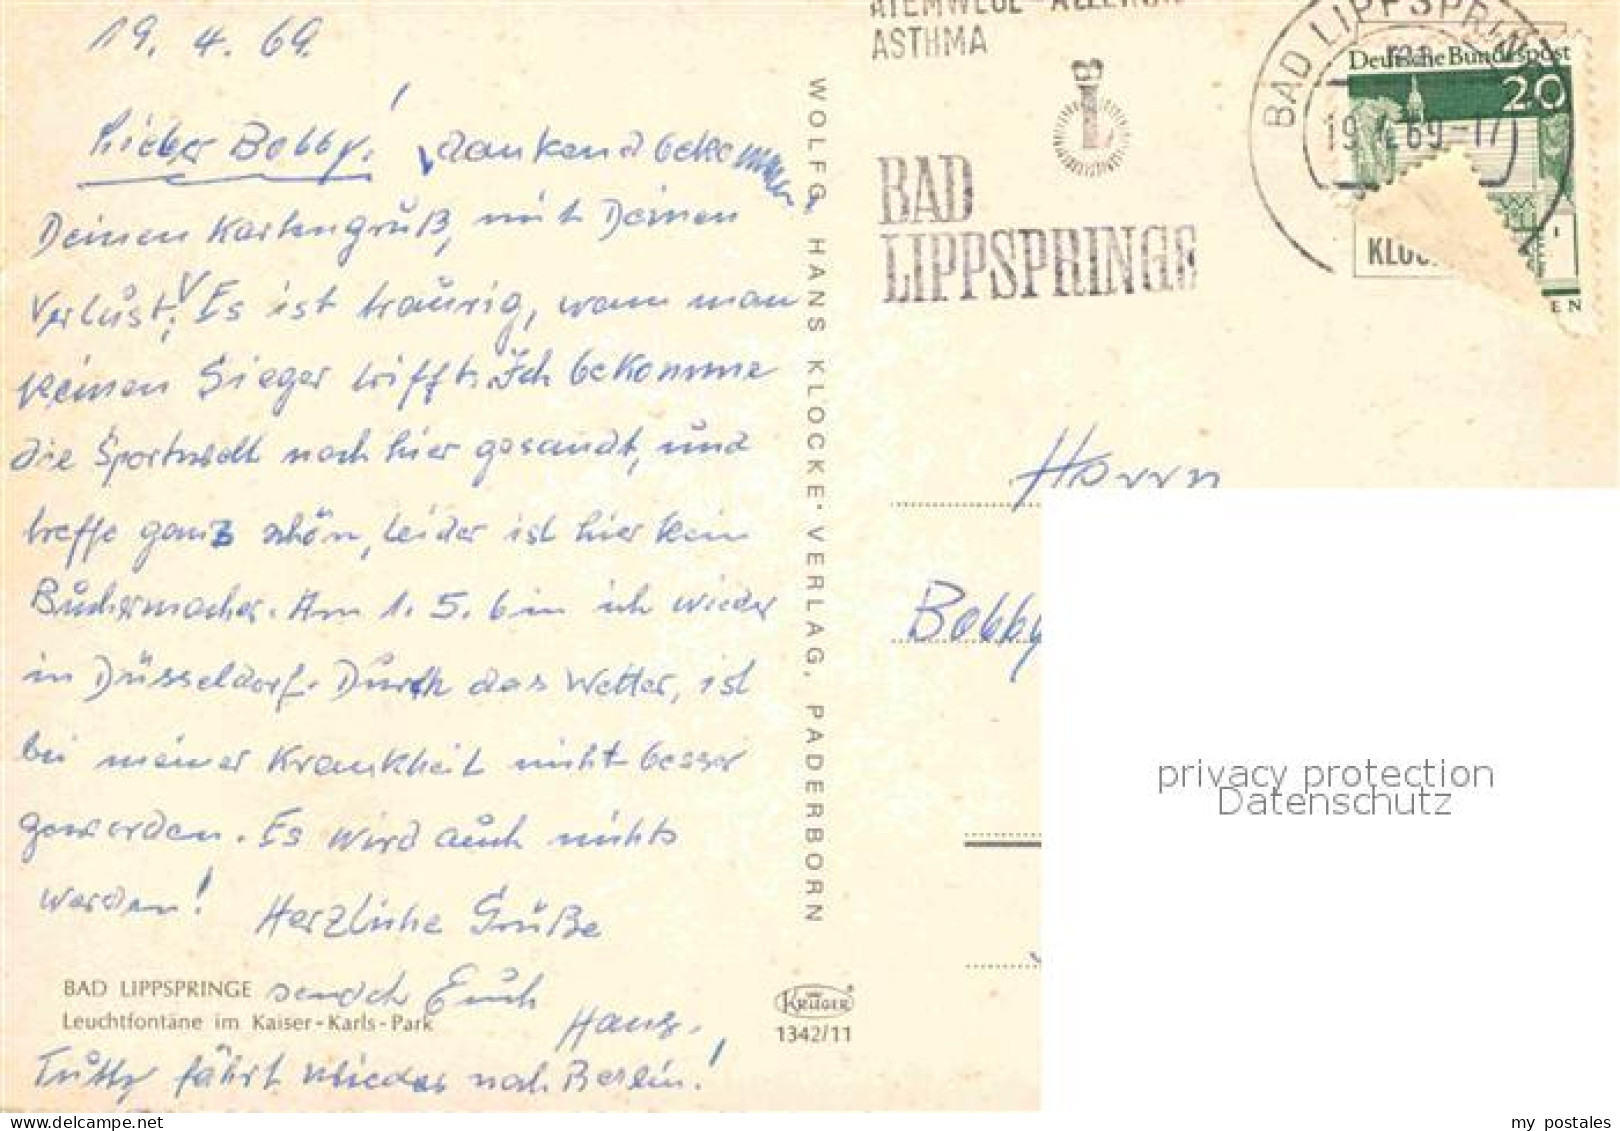 19. 4. 69.
Lieber Bobby! dankend bekommen
Deinen Kartengruß, mit Deinen
Verlust; Es ist traurig, wann man
keinen Sieger trifft. Ich bekomme
die Sportwelt nach hier gesandt, und
treffe ganz schön, leider ist hier kein
Buchermacher. Am 1. 5. bin ich wieder
in Düsseldorf. Durch das Wetter, ist
bei meiner Krankheit nicht besser
geworden. Es wird auch nichts
werden! Herzliche Grüße
BAD LIPPSPRINGE sendet Euch
Leuchtfontäne im Kaiser-Karls-Park
Hans.
fährt wieder nach Berlin!
WOLFG. HANS KLOCKE·VERLAG, PADERBORN
KRÜGER
1342/11
ATEMWEGE-ALLERGIE
ASTHMA
BAD
LIPPSPRINGE
BAD LIPPSPRINGE
19.4.69-17
Deutsche Bundespost
20
EN
Herrn
Bobby
privacy protection
Datenschutz
my postales